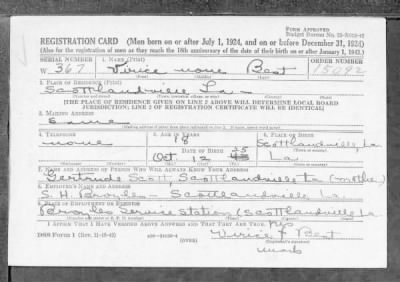 FORM APPROVED
Budget Bureau No. 33-R012-42
REGISTRATION CARD—(Men born on or after July 1, 1924, and on or before December 31, 1924)
(Also for the registration of men as they reach the 18th anniversary of the date of their birth on or after January 1, 1943.)
SERIAL NUMBER 1. NAME (Print) ORDER NUMBER
W 367 none Best 15092
(First) (Middle) (Last)
2. PLACE OF RESIDENCE (Print)
Scottlandville La -
[THE PLACE OF RESIDENCE GIVEN ON LINE 2 ABOVE WILL DETERMINE LOCAL BOARD
JURISDICTION; LINE 2 OF REGISTRATION CERTIFICATE WILL BE IDENTICAL]
3. MAILING ADDRESS
Same
4. TELEPHONE 5. AGE IN YEARS 6. PLACE OF BIRTH
none 18 Scottlandville, La
DATE OF BIRTH
Oct. 12 25 La
7. NAME AND ADDRESS OF PERSON WHO WILL ALWAYS KNOW YOUR ADDRESS
Gertrude Scott, Scottlandville La (mother)
8. EMPLOYER'S NAME AND ADDRESS
S. H. Broyles - Scottlandville La.
9. PLACE OF EMPLOYMENT OR BUSINESS
Broyles Service Station (Scottlandville La
I AFFIRM THAT I HAVE VERIFIED ABOVE ANSWERS AND THAT THEY ARE TRUE.
his
X Best
mark
DSS Form 1
(OVER)
(Registrant's signature)